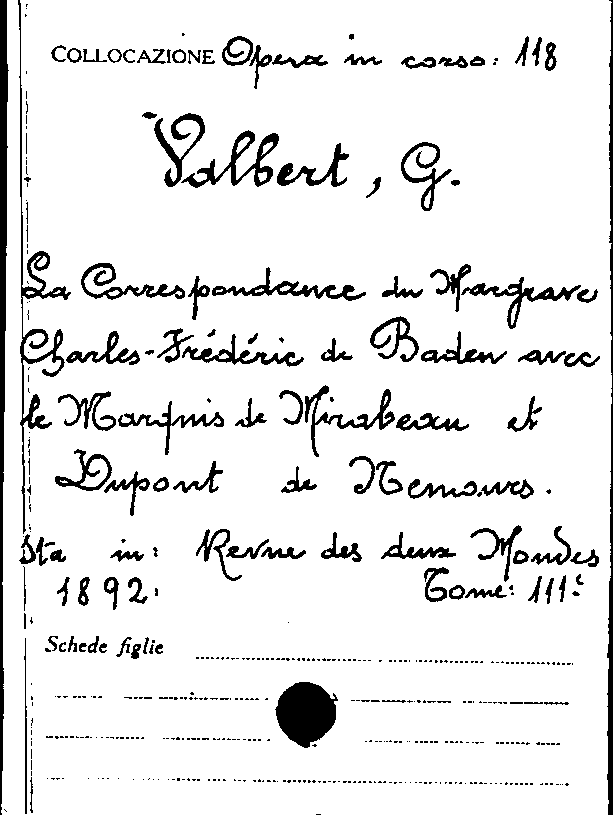 COLLOCAZIONE Opera in corso: 118
Valbert, G.
La Correspondance du Margrave
Charles-Frédéric de Baden avec
le Marquis de Mirabeau et
Dupont de Nemours.
Sta in: Revue des deux Mondes
1892. Tome: 111º
Schede figlie